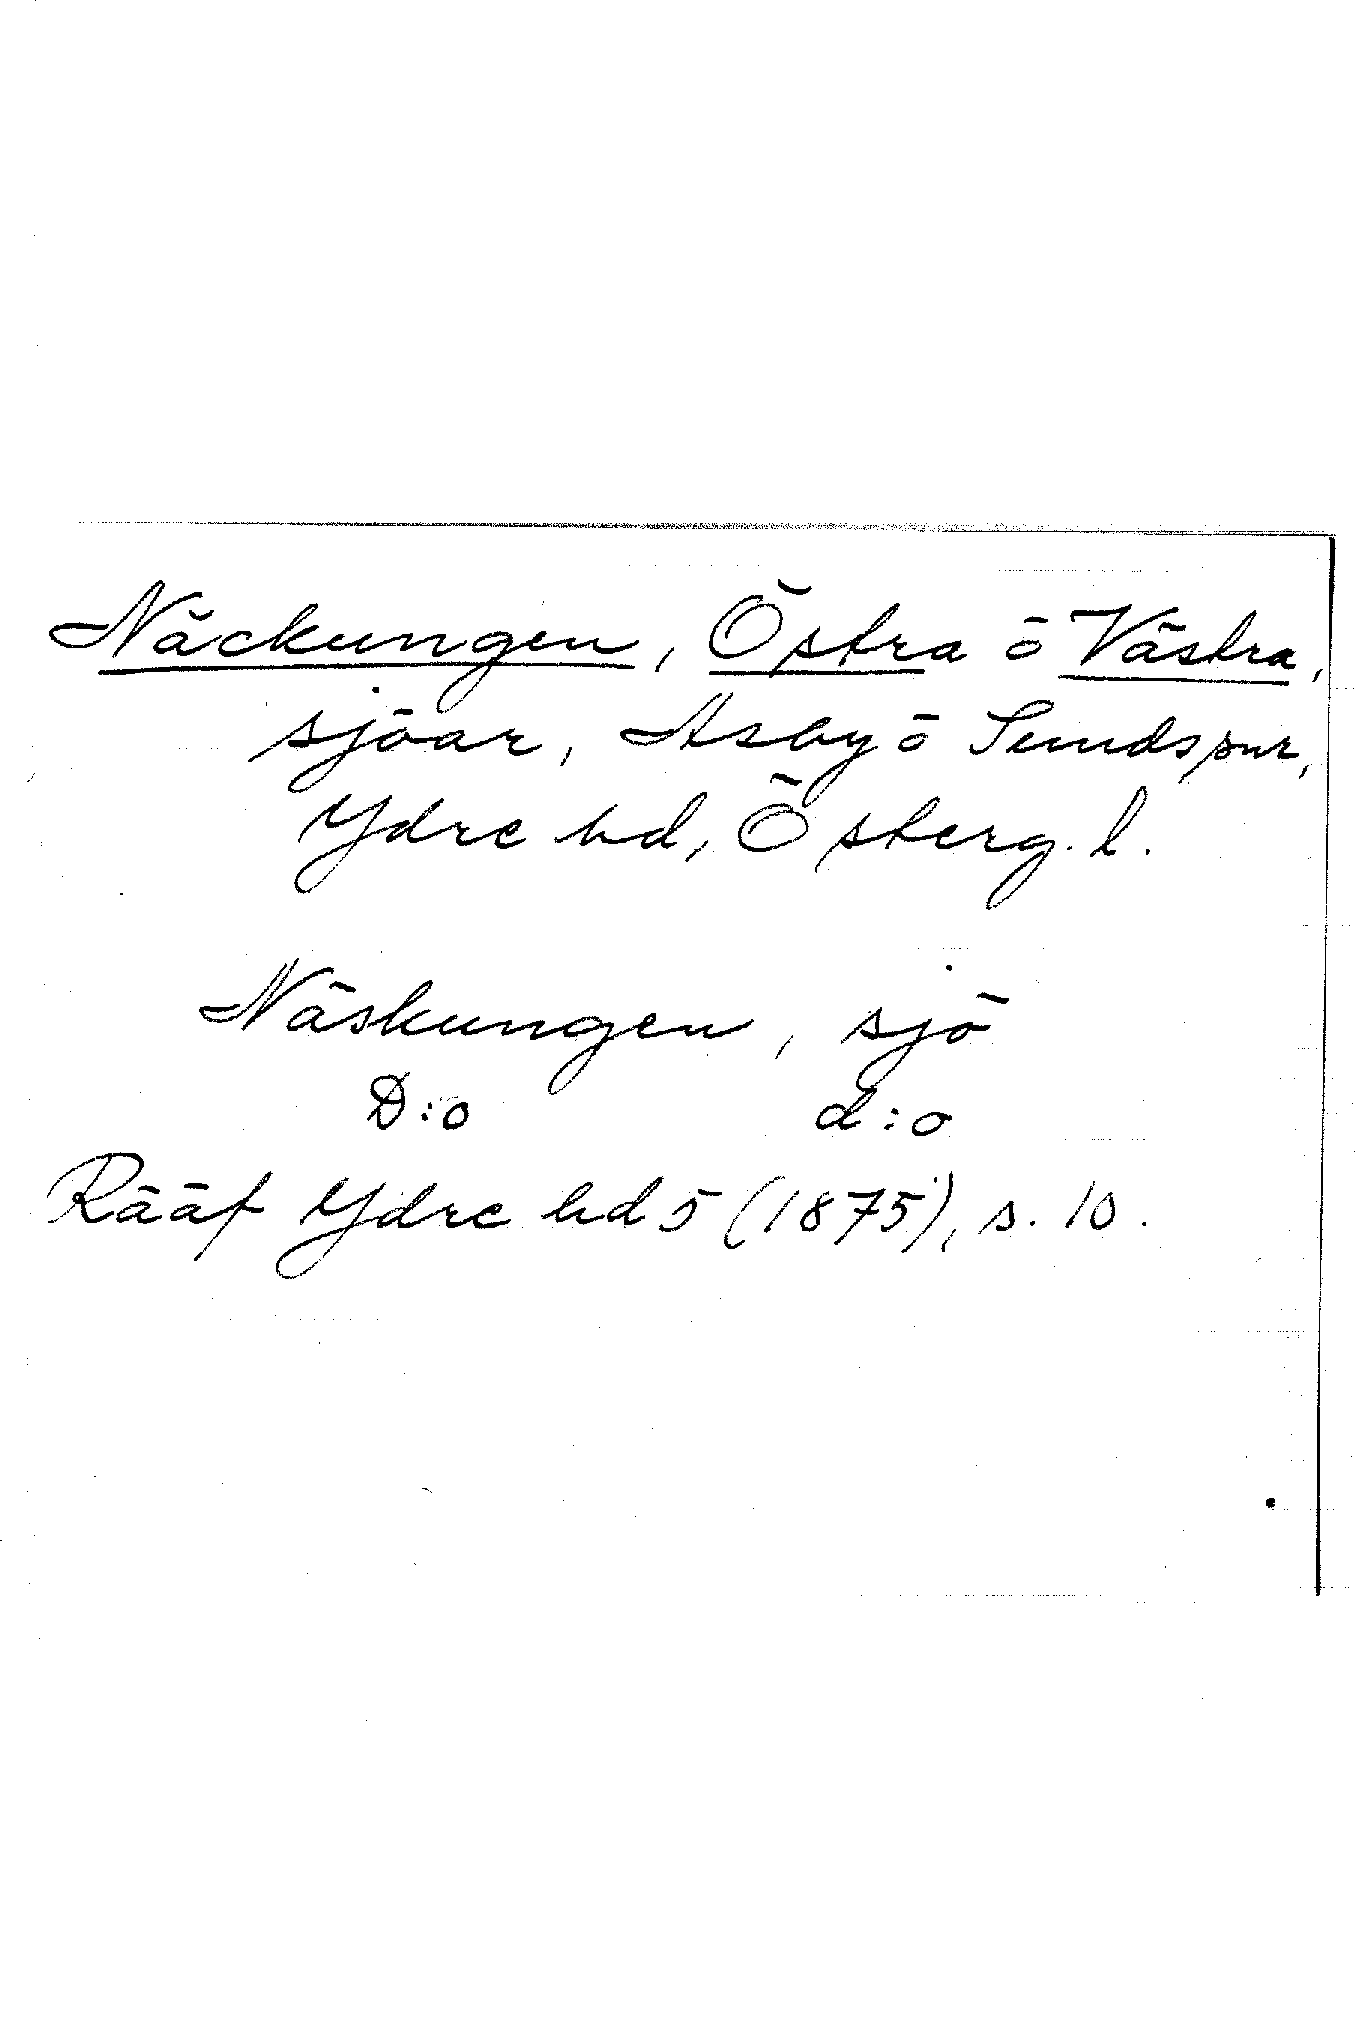 Näckungen, Östra o Västra,
sjöar, Asby o Sundspnr,
Ydre hd, Österg. l.
Näskungen, sjö
D:o d:o
Rääf Ydre hd 5 (1875), s. 10.